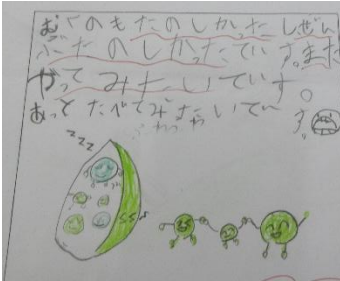 おくのもたのしかったしぜん
ぶたのしかったていすまた
やってみたいていす。
あっとたべてみたいてい
す。
zzz